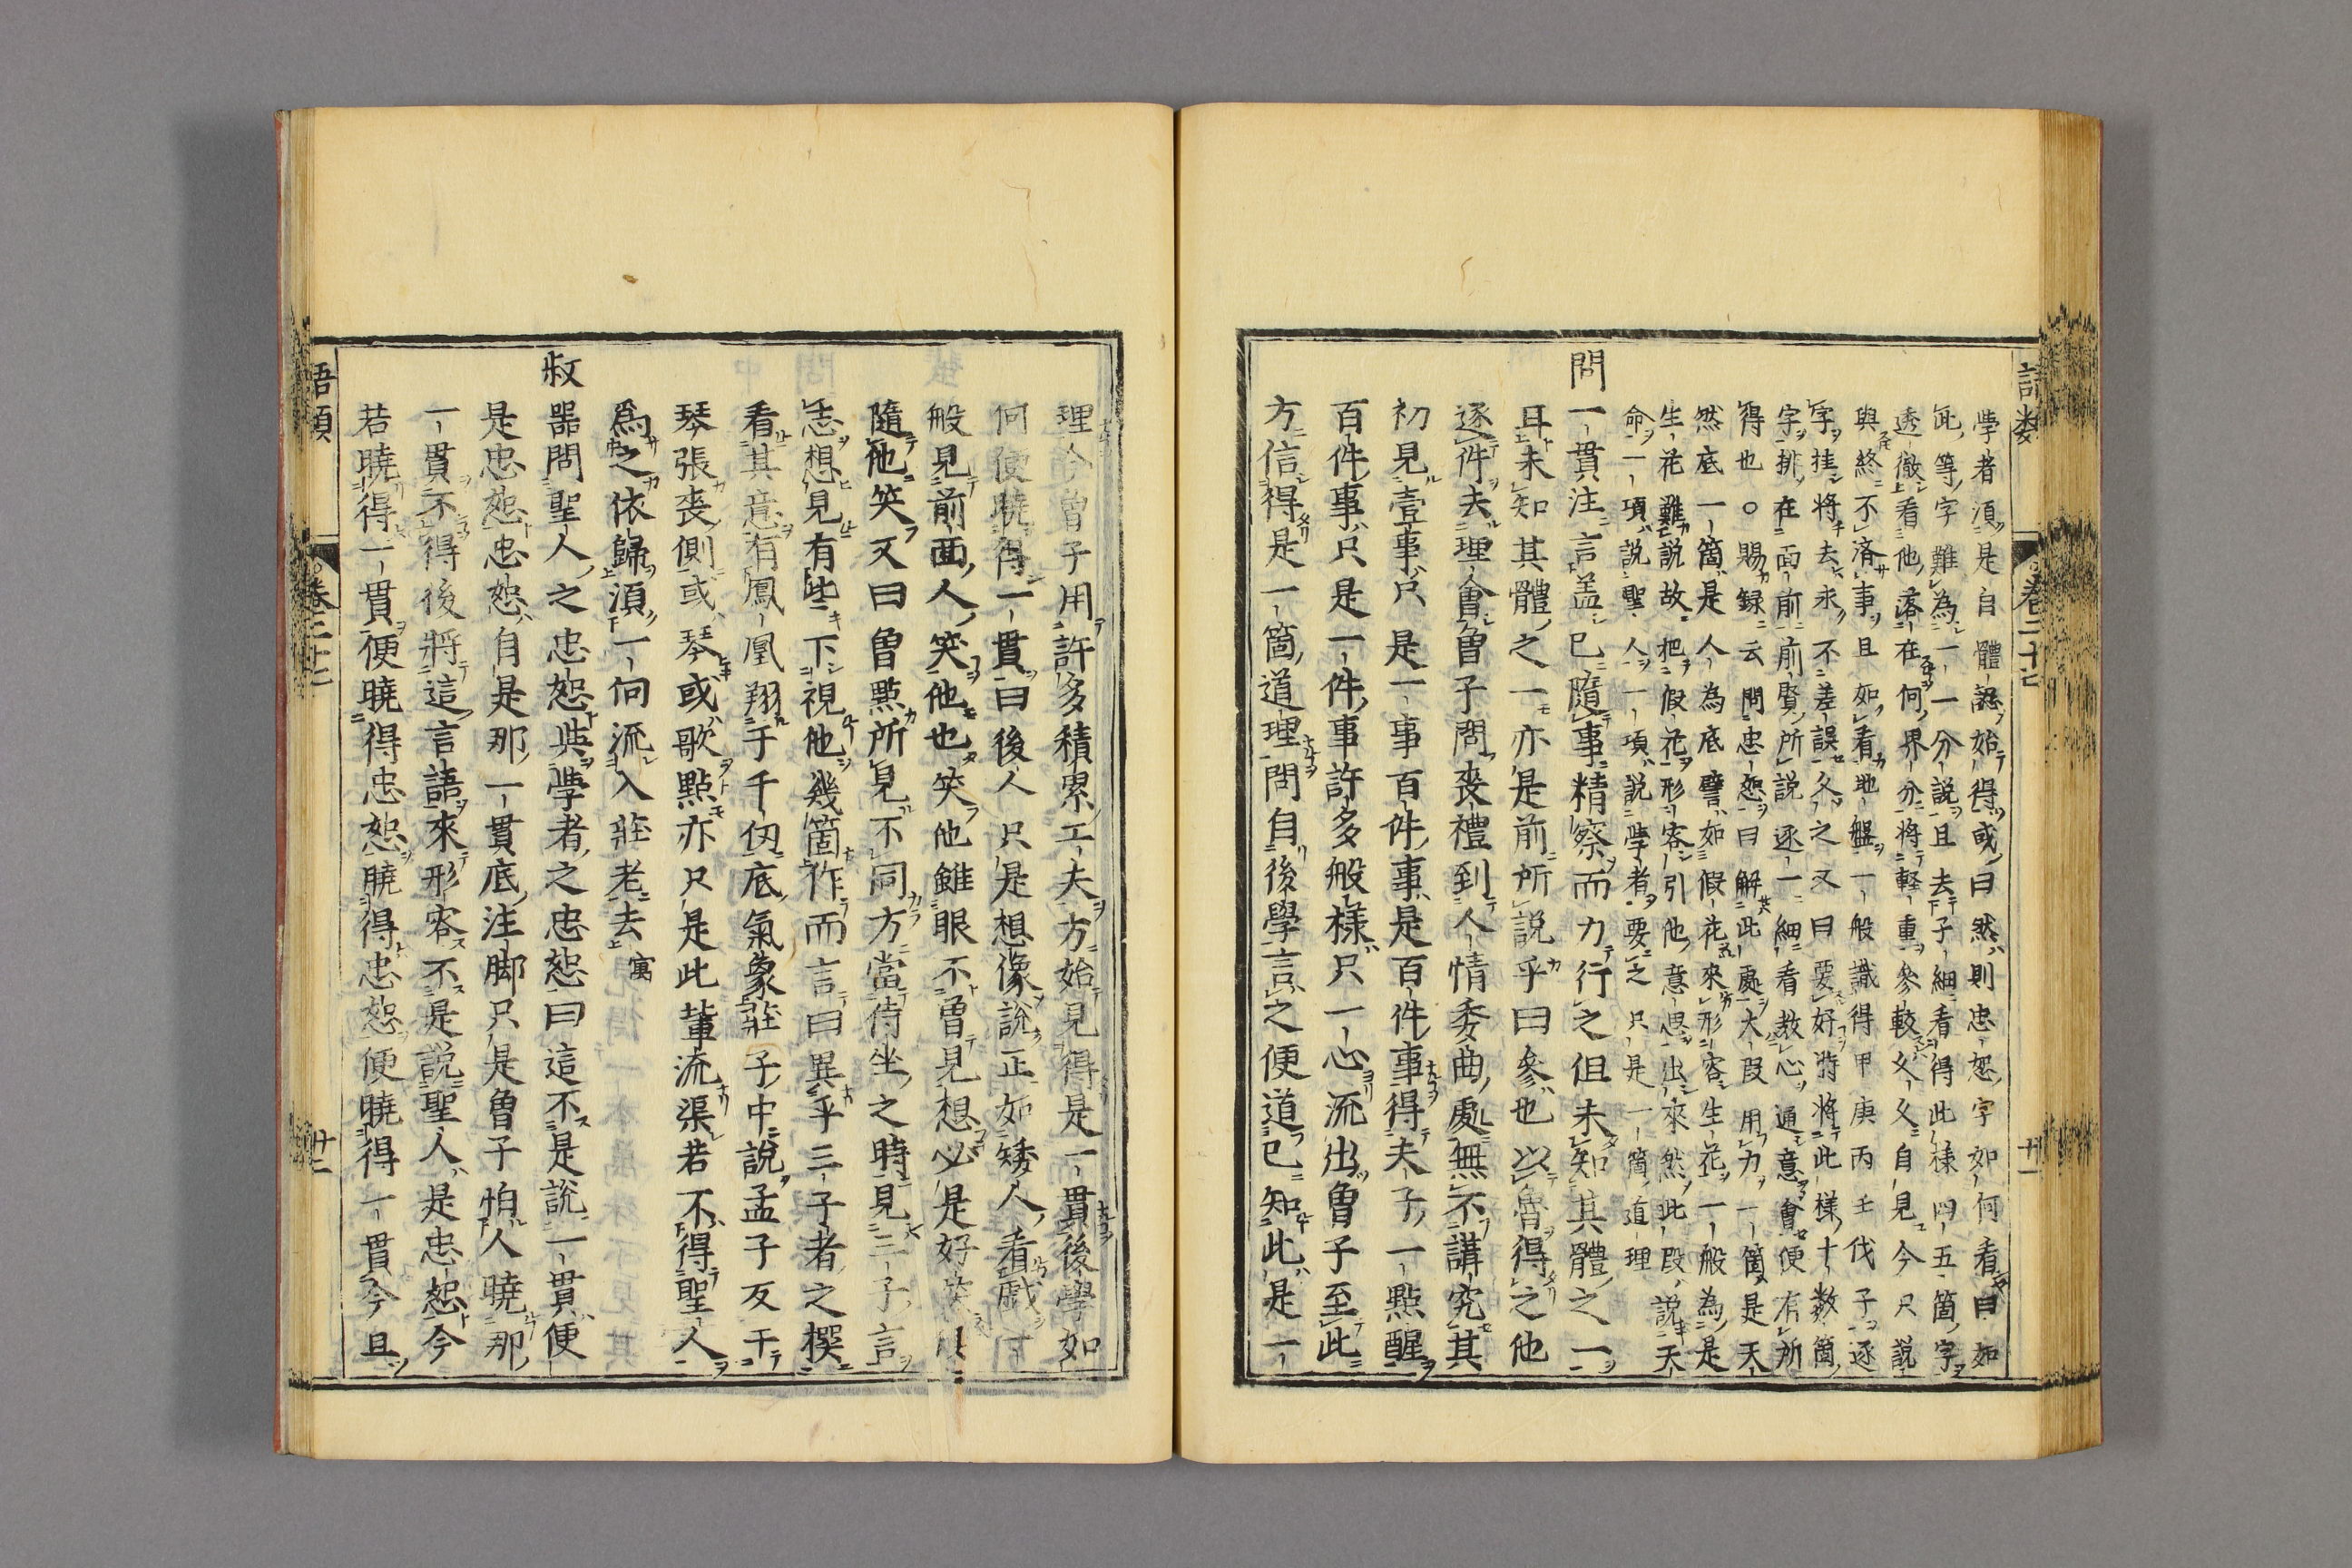 語類　卷二十七　十一
學者須是自體認始得或曰然則忠恕字如何看曰如
此等字難為一一分說且去子細看得此樣四五箇字
透徹看他落在何界分將輕重參較久久自見今只說
與終不濟事且如看地盤一般識得甲庚丙壬伐子逐
字挂將去永不差誤久之又曰要好將將此樣十數箇
字排在面前前賢所說逐一細看教心通意會便有所
得也○賜録云問忠恕曰解此處大段用力一箇是天
然底一箇是人為底譬如假花來形容生花一般為是
生花難說故把假花形容引他意思出來然此段說天
命一項說聖人一項說學者要之只是一箇道理
問一貫注言蓋已隨事精察而力行之但未知其體之一
耳未知其體之一亦是前所說乎曰參也以魯得之他
逐件去理會曾子問喪禮到人情委曲處無不講究其
初見壹事只是一事百件事是百件事得夫子一點醒
百件事只是一件事許多般樣只一心流出曾子至此
方信得是一箇道理問自後學言之便道已知此是一
理今曾子用許多積累工夫方始見得是一貫後學如
何便曉得一貫曰後人只是想像說正如矮人看戲一
般見前面人笑他也笑他雖眼不曾見想必是好笑
隨他笑又曰曾點所見不同方當侍坐之時見三子言
志想見有些下視他幾箇作而言曰異乎三子者之撰
看其意有鳳凰翔于千仞底氣象莊子中說孟子反子
琴張喪側或琴或歌點亦只是此輩流渠若不得聖人
為之依歸須一向流入莊老去寓
叔器問聖人之忠恕與學者之忠恕曰這不是說一貫便
是忠恕忠恕自是那一貫底注脚只是曾子怕人曉那
一貫不得後將這言語來形容不是說聖人是忠恕今
若曉得一貫便曉得忠恕曉得忠恕便曉得一貫今且
語類　卷二十七　十二